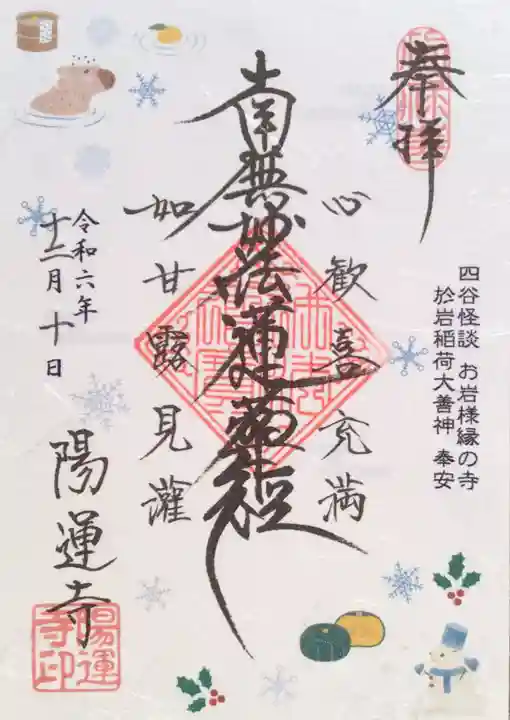 奉拝
四谷怪談 お岩様縁の寺
於岩稲荷大善神 奉安
心歓喜充満
南無妙法蓮華経
如甘露見灌
令和六年
十二月十日
陽運寺
陽運
寺印